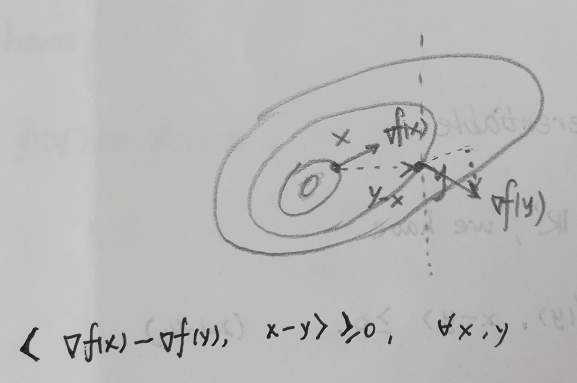 x ∇f(x)
y-x y ∇f(y)
< ∇f(x) - ∇f(y), x-y> ≥0, ∀x,y